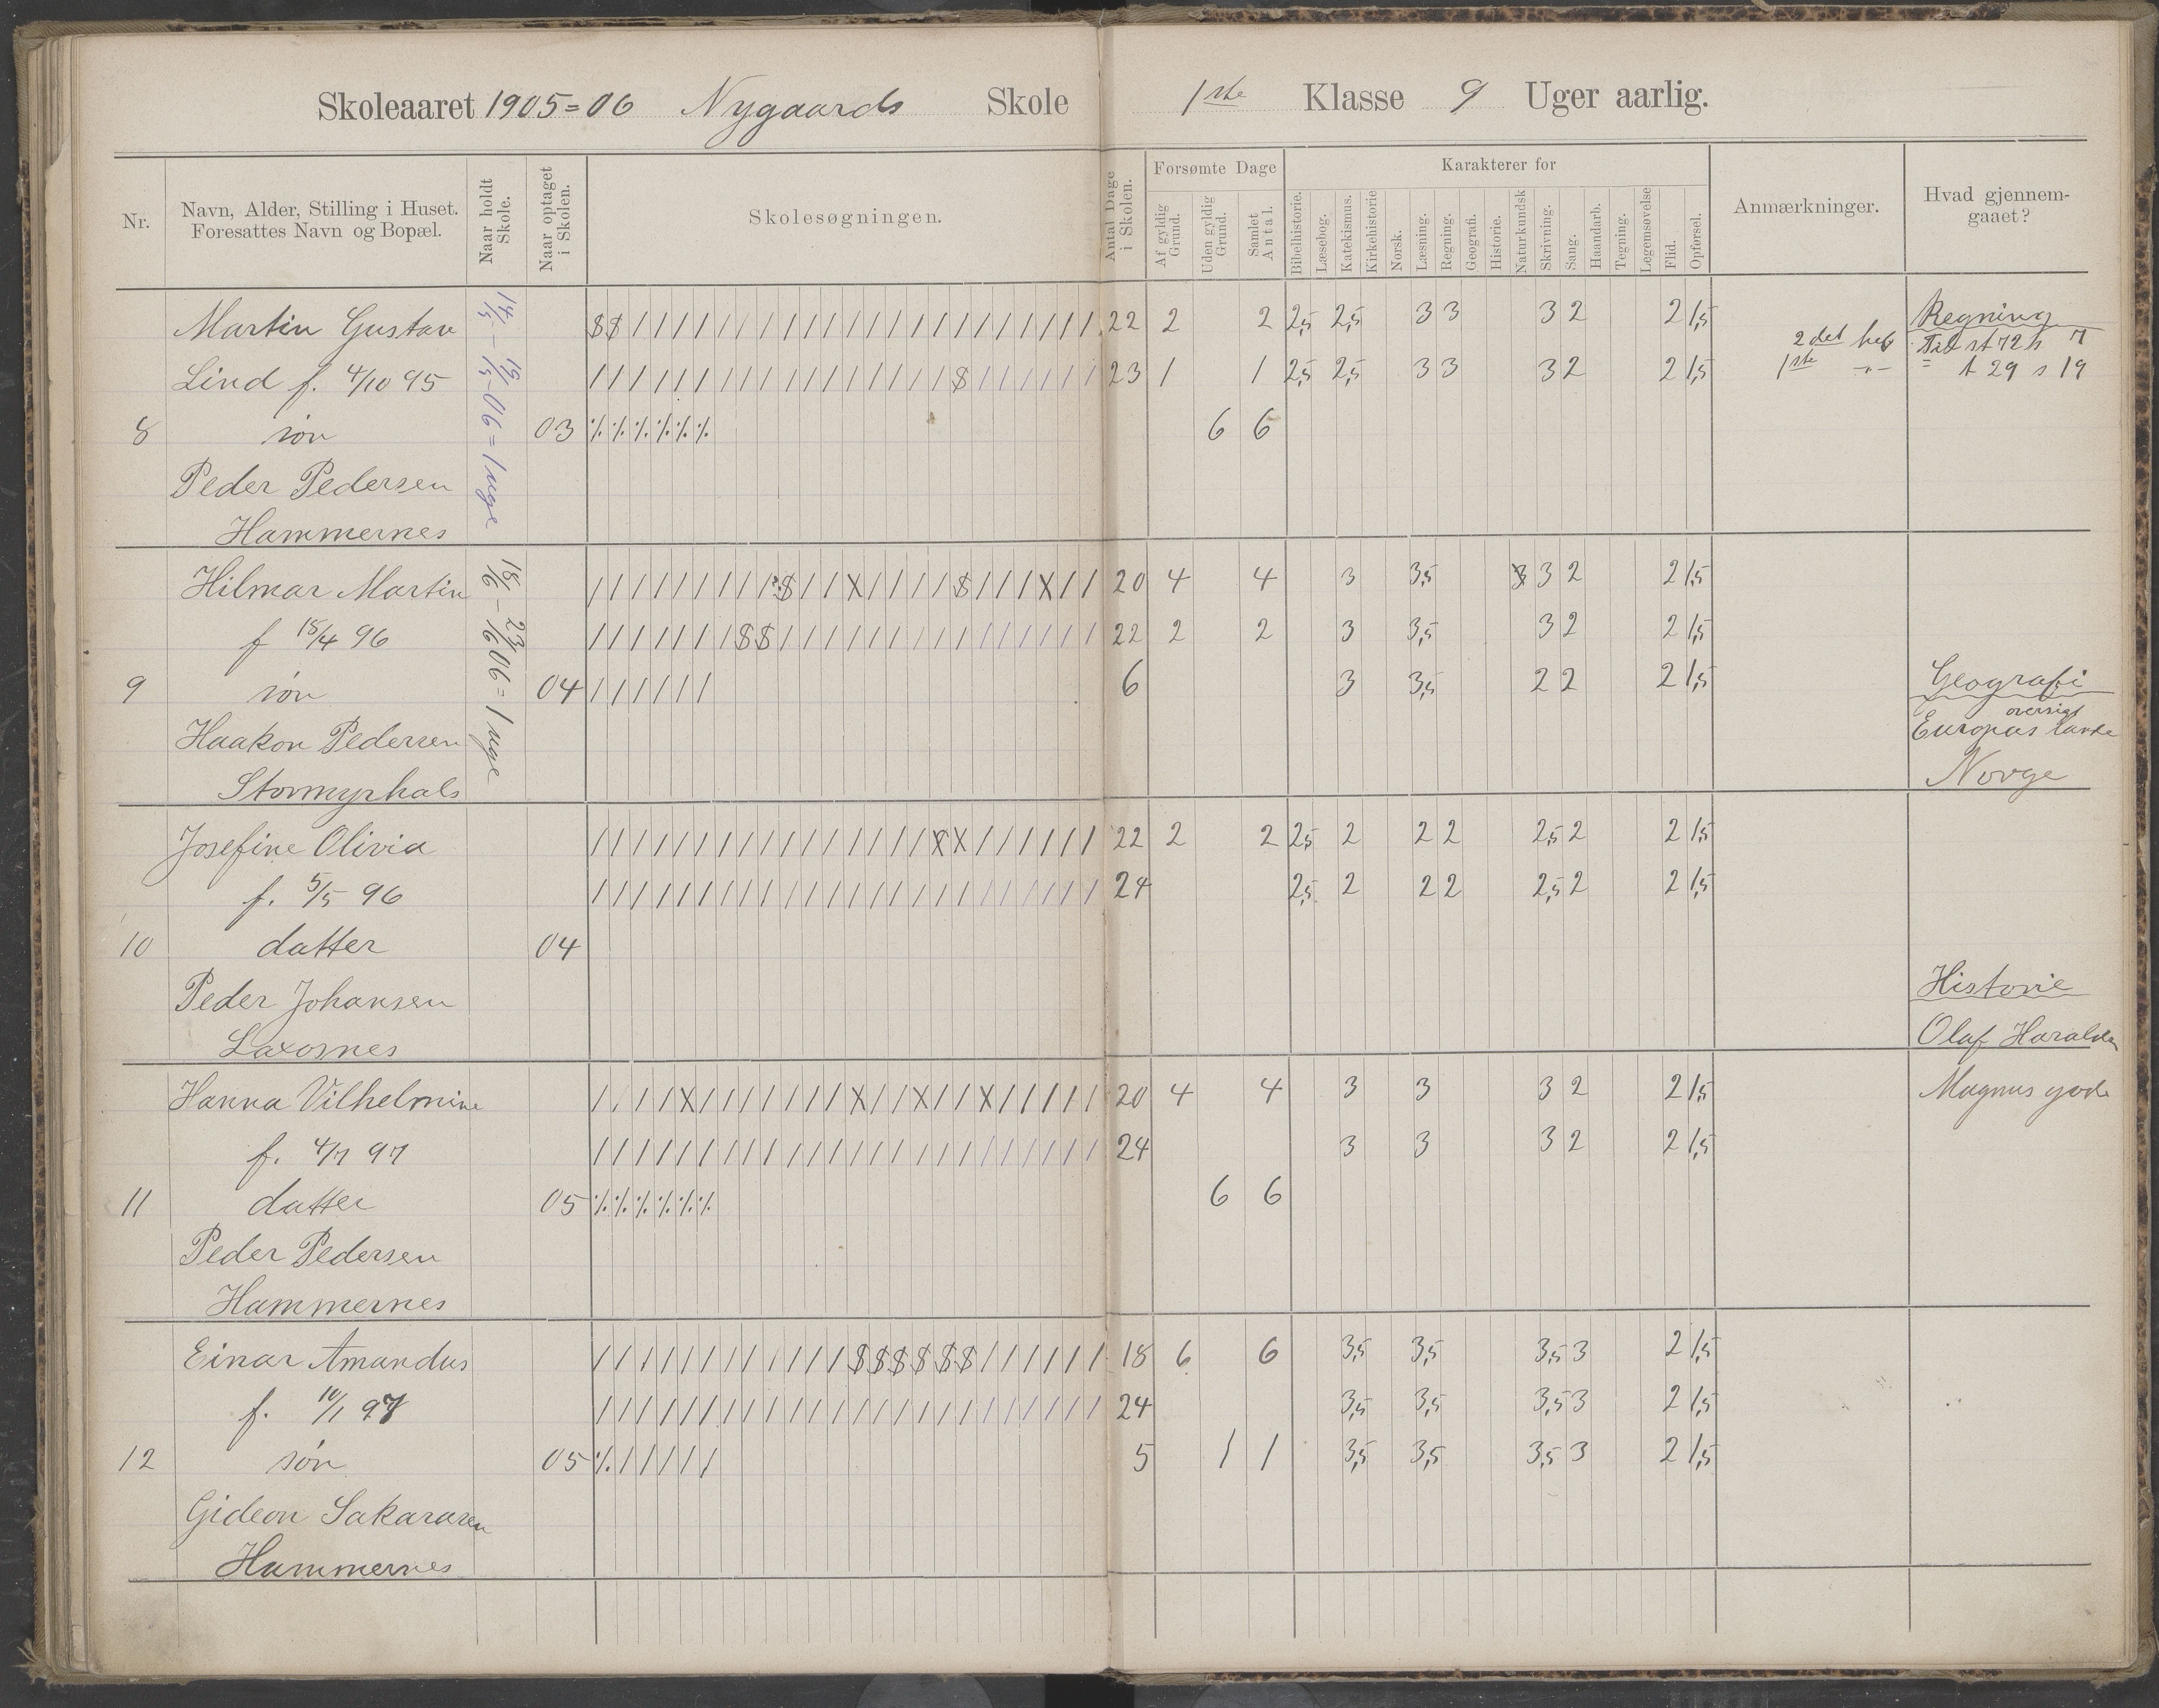 Skoleaaret 1905=06 Nygaards Skole 1ste Klasse 9 Uger aarlig.
Nr. Navn, Alder, Stilling i Huset. Foresattes Navn og Bopæl. Naar holdt Skole. Naar optaget i Skolen. Skolesøgningen. Antal Dage i Skolen. Forsømte Dage Af gyldig Grund. Uden gyldig Grund. Samlet Antal. Karakterer for Bibelhistorie. Læsebog. Katekismus. Kirkehistorie Norsk. Læsning. Regning. Geografi. Historie. Naturkundsk Skrivning. Sang. Haandarb. Tegning. Legemsøvelse Flid. Opførsel. Anmærkninger. Hvad gjennemgaaet?
14/5 - 19/5 - 06 = 1 uge
Martin Gustav 22 2 2 2,5 2,5 3 3 3 2 2 1,5 Regning
2det hef Til st 72 s 7
Lind f. 4/10 95 23 1 1 2,5 2,5 3 3 3 2 2 1,5
1ste -"- = st 29 s 19
8 søn 03 6 6
Peder Pedersen
Hammernes
18/6 - 23/6 06 = 1 uge
Hilmar Martin 20 4 4 3 3,5 3 2 2 1,5
f 18/4 96 22 2 2 3 3,5 3 2 2 1,5
9 søn 04 6 3 3,5 2 2 2 1,5 Geografi
oversigt
Haakon Pedersen Europas lande
Stormyrhals Norge
Josefine Olivia 22 2 2 2,5 2 2 2 2,5 2 2 1,5
f. 5/5 96 24 2,5 2 2 2 2,5 2 2 1,5
10 datter 04
Peder Johansen Historie
Laxosnes Olaf Haraldsn
Hanna Vilhelmine 20 4 4 3 3 3 2 2 1,5 Magnus gode
f. 4/7 97 24 3 3 3 2 2 1,5
11 datter 05 6 6
Peder Pedersen
Hammernes
Einar Amandus 18 6 6 3,5 3,5 3,5 3 2 1,5
f. 10/1 97 24 3,5 3,5 3,5 3 2 1,5
12 søn 05 5 1 1 3,5 3,5 3,5 3 2 1,5
Gideon Sakarasen
Hammernes